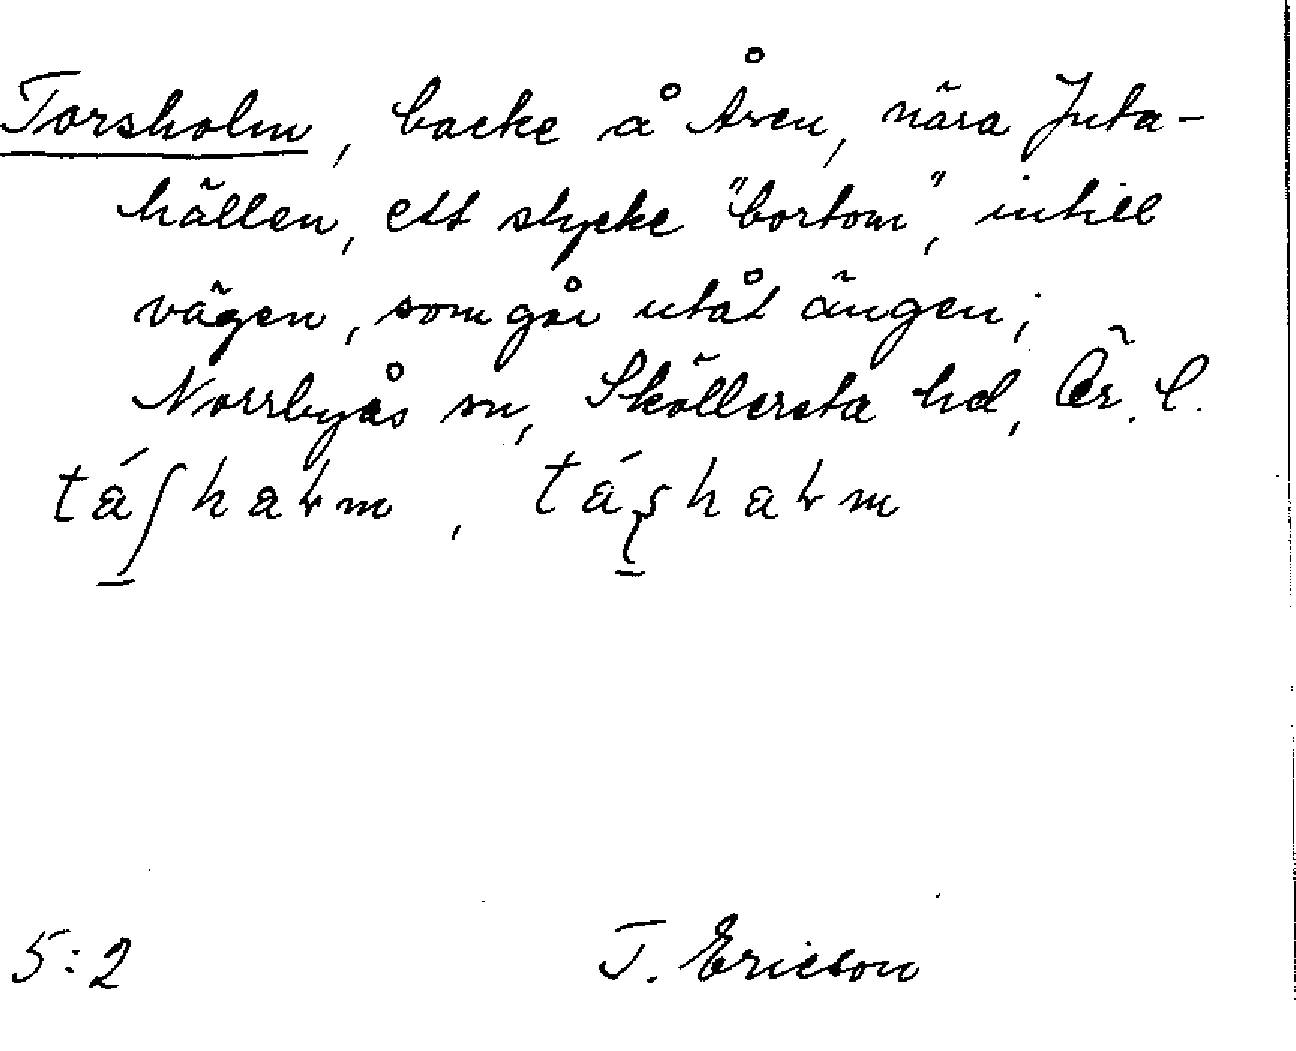 Torsholm, backe å Åsen, nära Juta-
hällen, ett stycke "bortom", intill
vägen, som går utåt ängen;
Norrbyås sn, Sköllersta hd, Ör. l.
5:2 T. Ericson